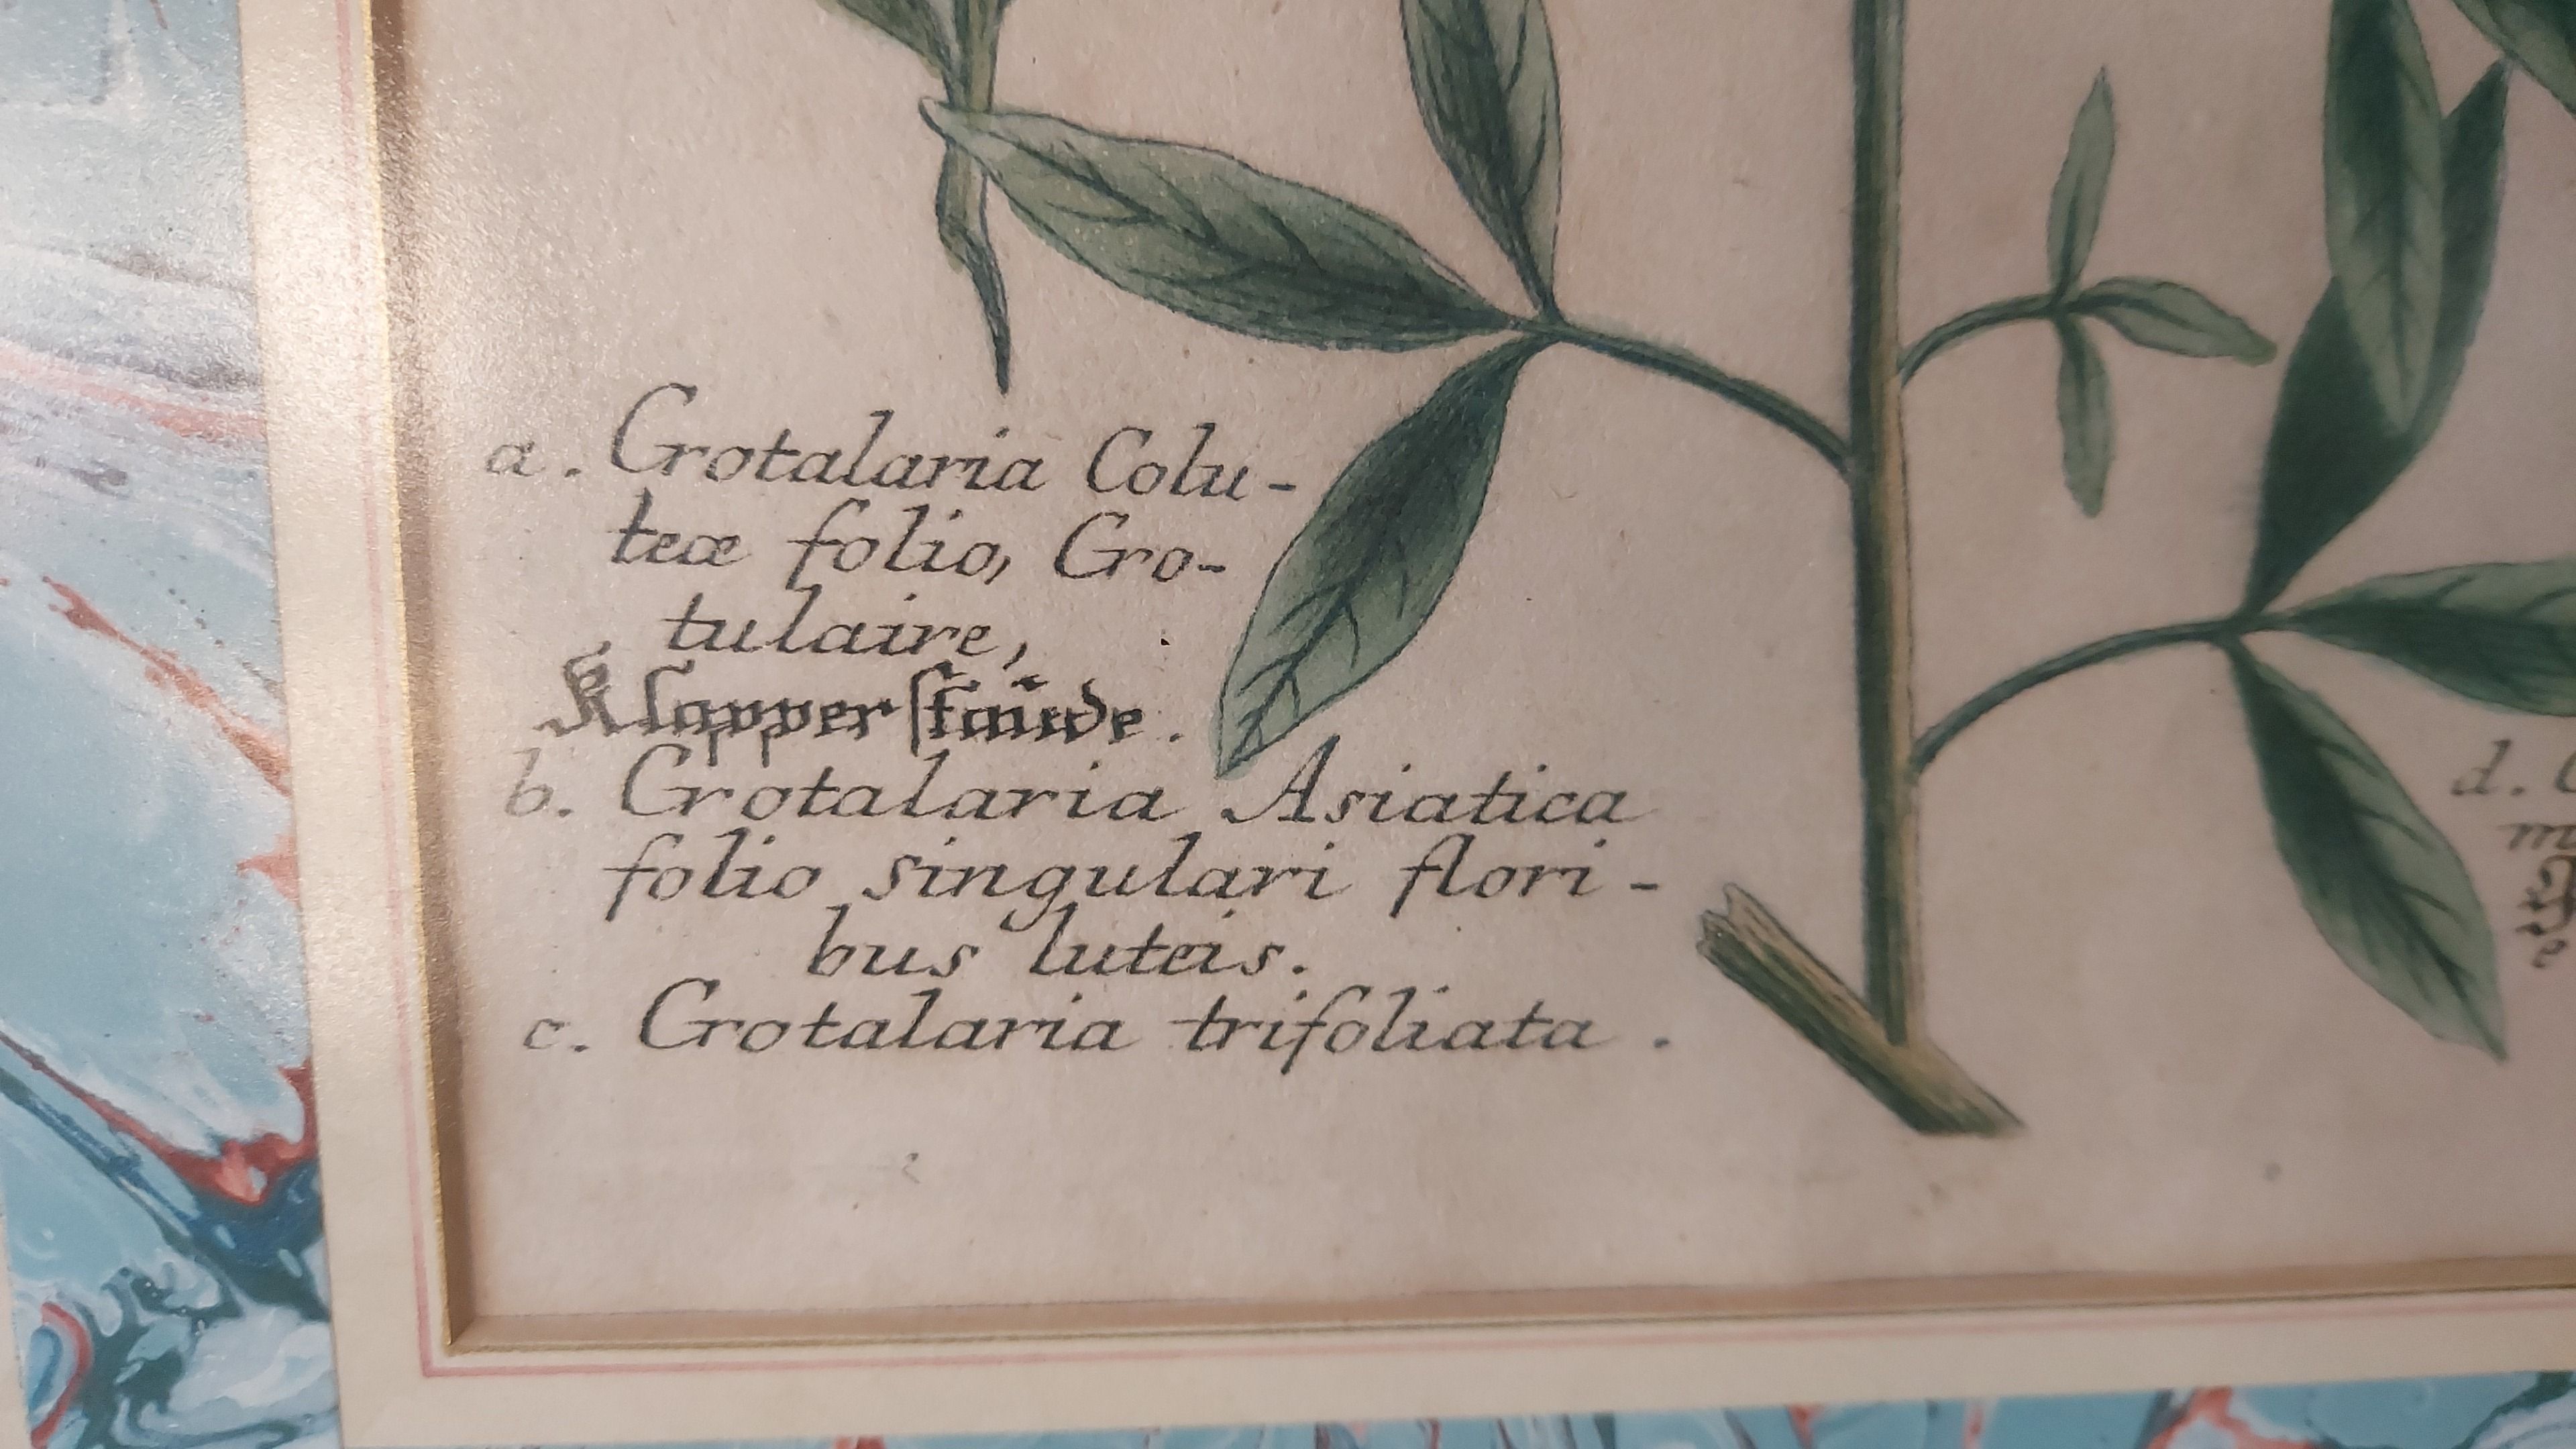 a. Crotalaria Colu-
teæ folio, Cro-
tulaire,
Klapperstaude.
b. Crotalaria Asiatica
folio singulari flori-
bus luteis.
c. Crotalaria trifoliata.
d.